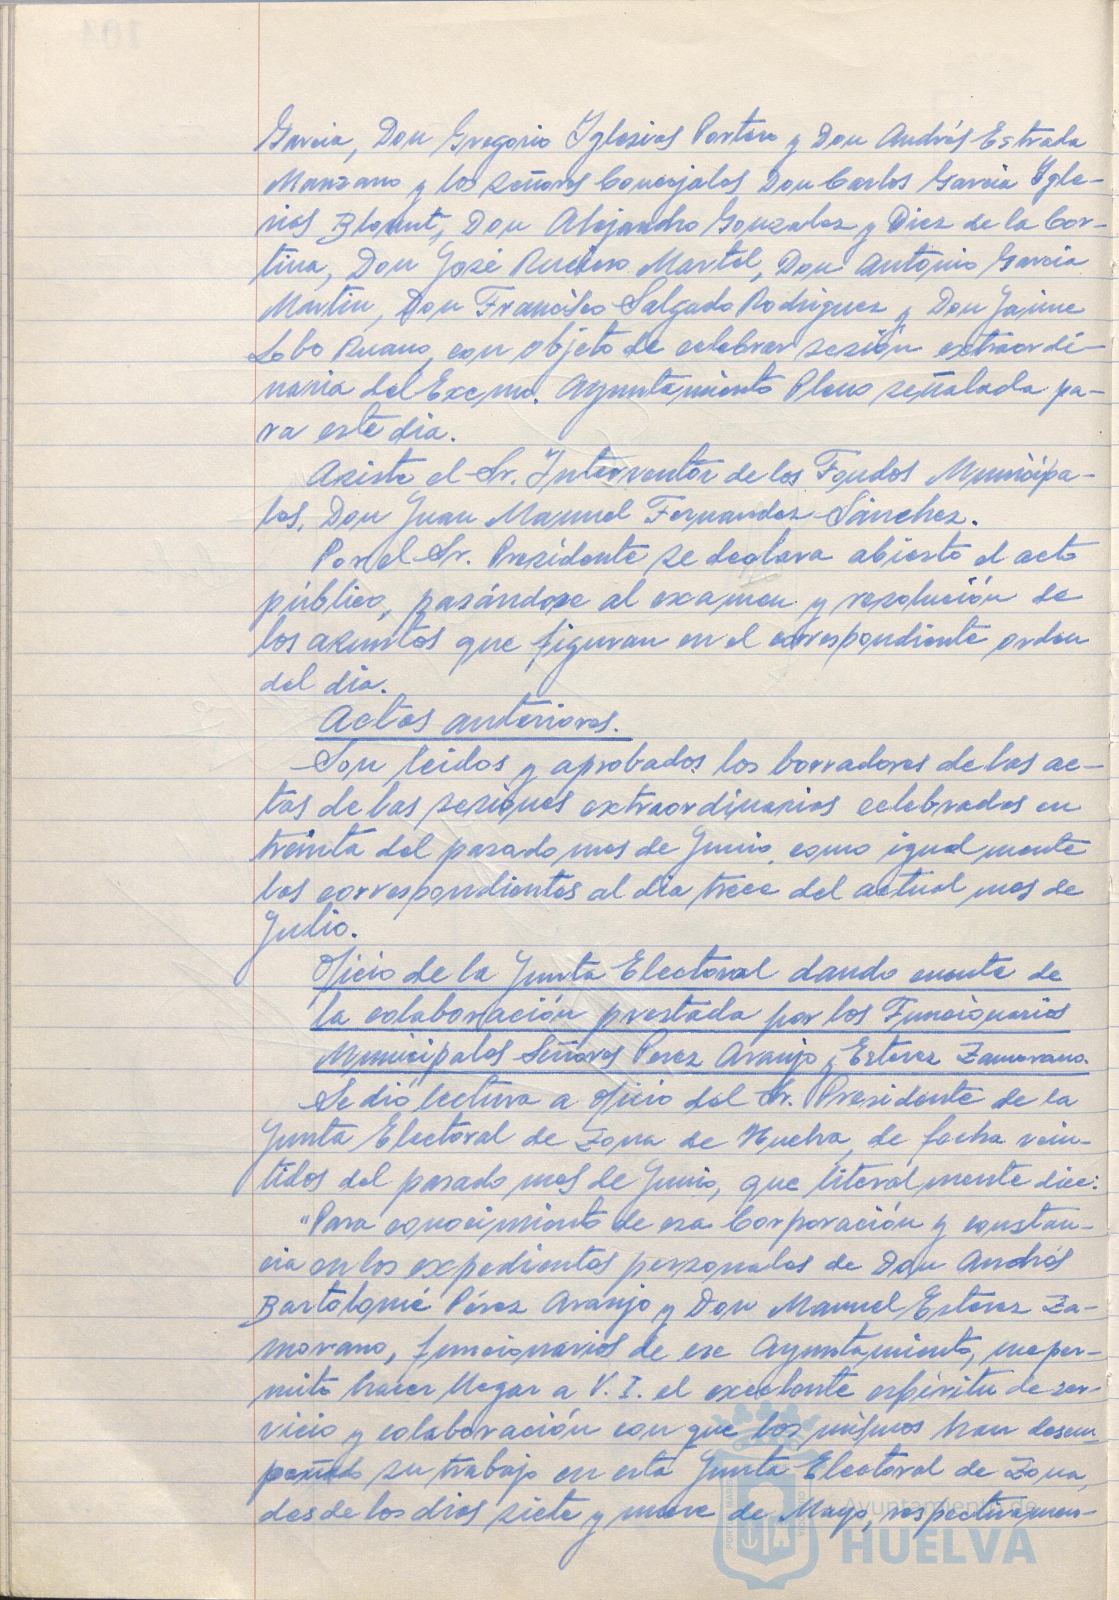 Garcia, Don Gregorio Iglesias Portero y Don Andrés Estrada
Manzano y los Señores Concejales Don Carlos Garcia Igle-
sias Blount, Don Alejandro Gonzalez y Diez de la Cor-
tina, Don José Ruciero Martel, Don Antonio Garcia
Martin, Don Francisco Salgado Rodriguez y Don Jaime
Lobo Ruano, con objeto de celebrar sesión extraordi-
naria del Excmo. Ayuntamiento Pleno señalada pa-
ra este dia.
Asiste el Sr. Interventor de los Fondos Municipa-
les, Don Juan Manuel Fernandez Sánchez.
Por el Sr. Presidente se declara abierto el acto
público, pasándose al examen y resolución de
los asuntos que figuran en el correspondiente orden
del dia.
Actas anteriores.
Son leidos y aprobados los borradores de las ac-
tas de las sesiones extraordinarias celebradas en
treinta del pasado mes de Junio, como igualmente
las correspondientes al dia trece del actual mes de
Julio.
Oficio de la Junta Electoral dando cuenta de
la colaboración prestada por los Funcionarios
Municipales Señores Perez Araujo y Estevez Zamorano.
Se dió lectura a oficio del Sr. Presidente de la
Junta Electoral de Zona de Huelva, de fecha vein-
tidos del pasado mes de Junio, que literalmente dice:
"Para conocimiento de esa Corporación y constan-
cia en los expedientes personales de Don Andrés
Bartolomé Pérez Araujo y Don Manuel Estevez Za-
morano, funcionarios de ese Ayuntamiento, me per-
mito hacer llegar a V. I. el excelente espíritu de ser-
vicio y colaboración con que los mismos han desem-
peñado su trabajo en esta Junta Electoral de Zona,
desde los dias siete y nueve de Mayo, respectivamen-
Ayuntamiento de
HUELVA